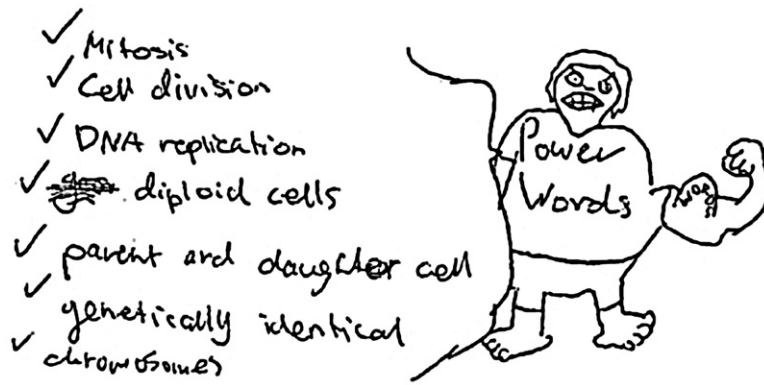 Mitosis
Cell division
DNA replication
diploid cells
parent and daughter cell
genetically identical
chromosomes
Power
Words